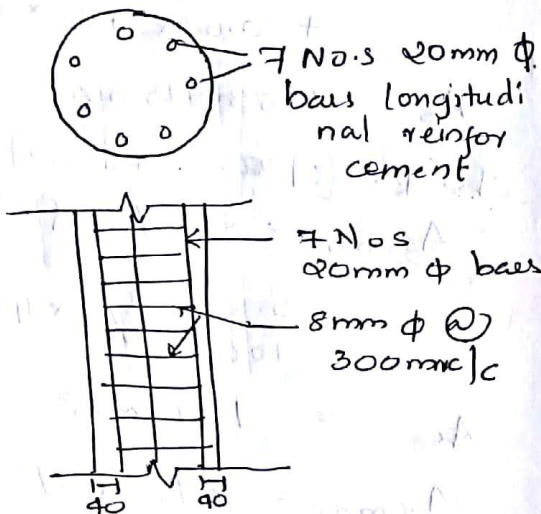 7 No.s 20mm φ
bars longitudi
nal reinfor
cement
7 Nos
20mm φ bars
8mm φ @
300mmc/c
40
40